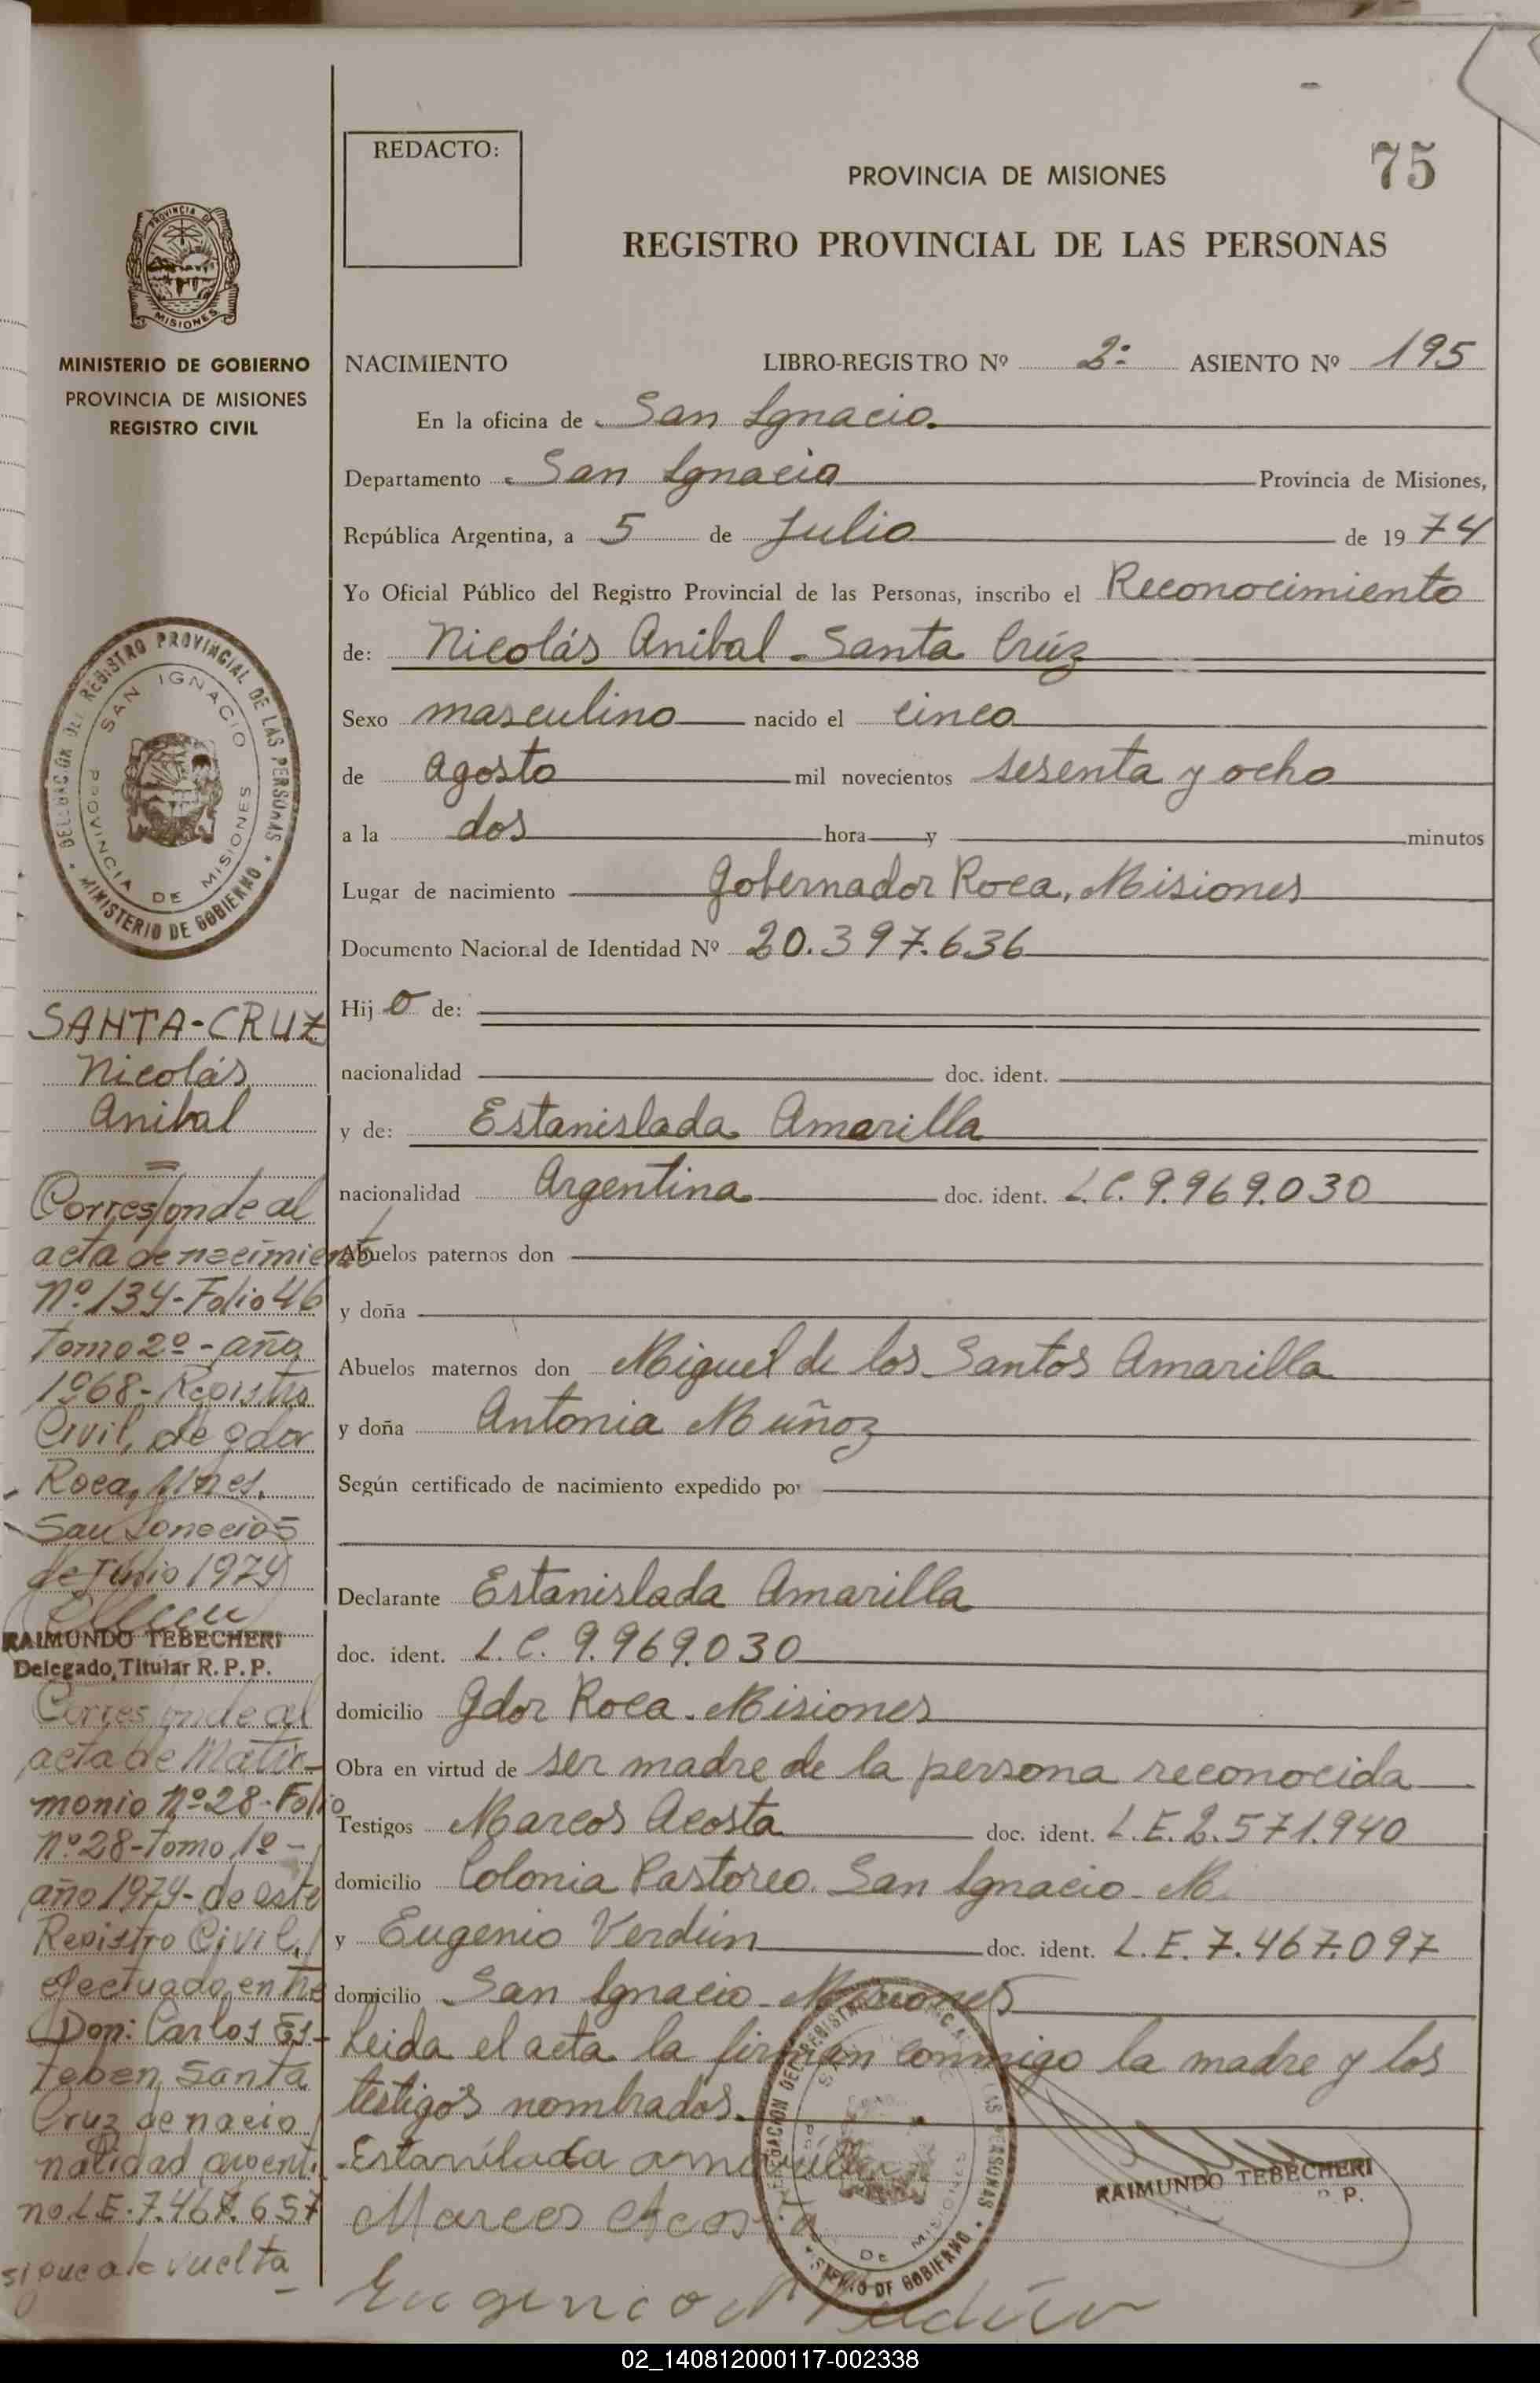 REDACTO:
PROVINCIA DE MISIONES
75
REGISTRO PROVINCIAL DE LAS PERSONAS
PROVINCIA DE
MISIONES
MINISTERIO DE GOBIERNO
PROVINCIA DE MISIONES
REGISTRO CIVIL
NACIMIENTO LIBRO-REGISTRO Nº 2º ASIENTO Nº 195
En la oficina de San Ignacio.
Departamento San Ignacio Provincia de Misiones,
República Argentina, a 5 de Julio de 1974
Yo Oficial Público del Registro Provincial de las Personas, inscribo el Reconocimiento
de: Nicolás Anibal - Santa Crúz
Sexo masculino nacido el cinco
de agosto mil novecientos sesenta y ocho
a la dos hora y minutos
Lugar de nacimiento Gobernador Roca, Misiones
Documento Nacional de Identidad Nº 20.397.636
Hij o de:
nacionalidad doc. ident.
y de: Estanislada Amarilla
nacionalidad Argentina doc. ident. L.C. 9.969.030
Abuelos paternos don
y doña
Abuelos maternos don Miguel de los Santos Amarilla
y doña Antonia Muñoz
Según certificado de nacimiento expedido por
Declarante Estanislada Amarilla
doc. ident. L.C. 9.969.030
domicilio Gdor Roca. Misiones
Obra en virtud de ser madre de la persona reconocida
Testigos Marcos Acosta doc. ident. L.E. 2.571.940
domicilio Colonia Pastoreo. San Ignacio - M.
y Eugenio Verdún doc. ident. L.E. 7.467.097
domicilio San Ignacio - Misiones
Leida el acta la firman conmigo la madre y los
testigos nombrados.
Estanilada amarilla
Marcos Acosta
RAIMUNDO TEBECHERI
P.
Eugenio Verdún
DELEGACION DEL REGISTRO PROVINCIAL DE LAS PERSONAS
SAN IGNACIO
PROVINCIA DE MISIONES
MINISTERIO DE GOBIERNO
SANTA-CRUZ
Nicolás
Anibal
Corresponde al
acta de nacimiento
Nº 134-Folio 46
Tomo 2º - año
1968- Registro
Civil, de gdor
Roca, Mnes.
San Ignacio 5
de Julio 1974
RAIMUNDO TEBECHERI
Delegado Titular R.P.P.
Corresponde al
acta de Matri-
monio Nº 28-Folio
Nº 28-Tomo 1º -
año 1974- de este
Registro Civil,
efectuado entre
Don: Carlos Es-
teben Santa
Cruz de nacio
nalidad argenti
no L.E. 7.467.657
sigue a la vuelta
02_140812000117-002338